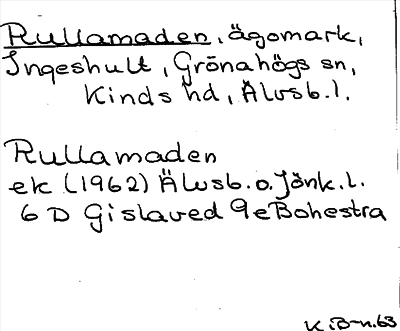 Rullamaden, ägomark,
Ingeshult, Grönahögs sn,
Kinds hd, Älvsb.l.
Rullamaden
ek (1962) Älvsb.o.Jönk.l.
6 D Gislaved 9e Bohestra
K.B-n.63